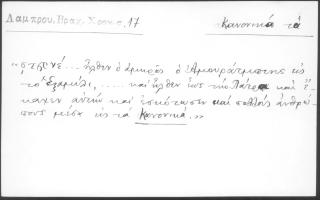 Λαμπρου, Βραχ. Χρονικ, 17
Κανονικά τά
"στῃς νέ... ἦλθεν ὁ ἀμιρᾶς ὁ Ἀμουράτμπεης εἰς
τὸ Ἑξαμίλι, ..... καὶ ἦλθεν ἕως τὴν Πάτρα καὶ ἔ-
καψεν αὐτὴν καὶ ἐσκότωσεν καὶ πολλοὺς ἀνθρώ-
πους μέσα εἰς τὰ Κανονικά."